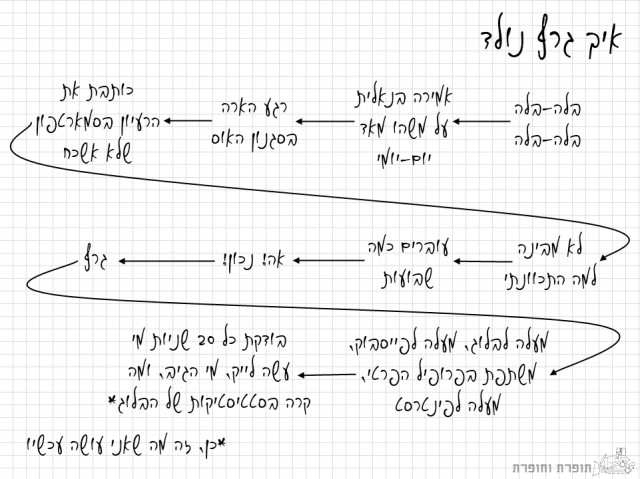 איך גרף נולד
בלה-בלה
בלה-בלה
אמירה בנאלית
על משהו מאד
יום-יומי
רגע הארה
בסגנון האוס
כותבת את
הרעיון בסמארטפון
שלא אשכח
לא מבינה
למה התכוונתי
עוברים כמה
שבועות
אה! נכון!
גרף
מעלה לבלוג, מעלה לפייסבוק,
משתפת בפרופיל הפרטי,
מעלה לפינטרסט
בודקת כל 20 שניות מי
עשה לייק, מי הגיב, ומה
קרה בסטטיסטיקות של הבלוג*
*כן, זה מה שאני עושה עכשיו
תופרת וחופרת